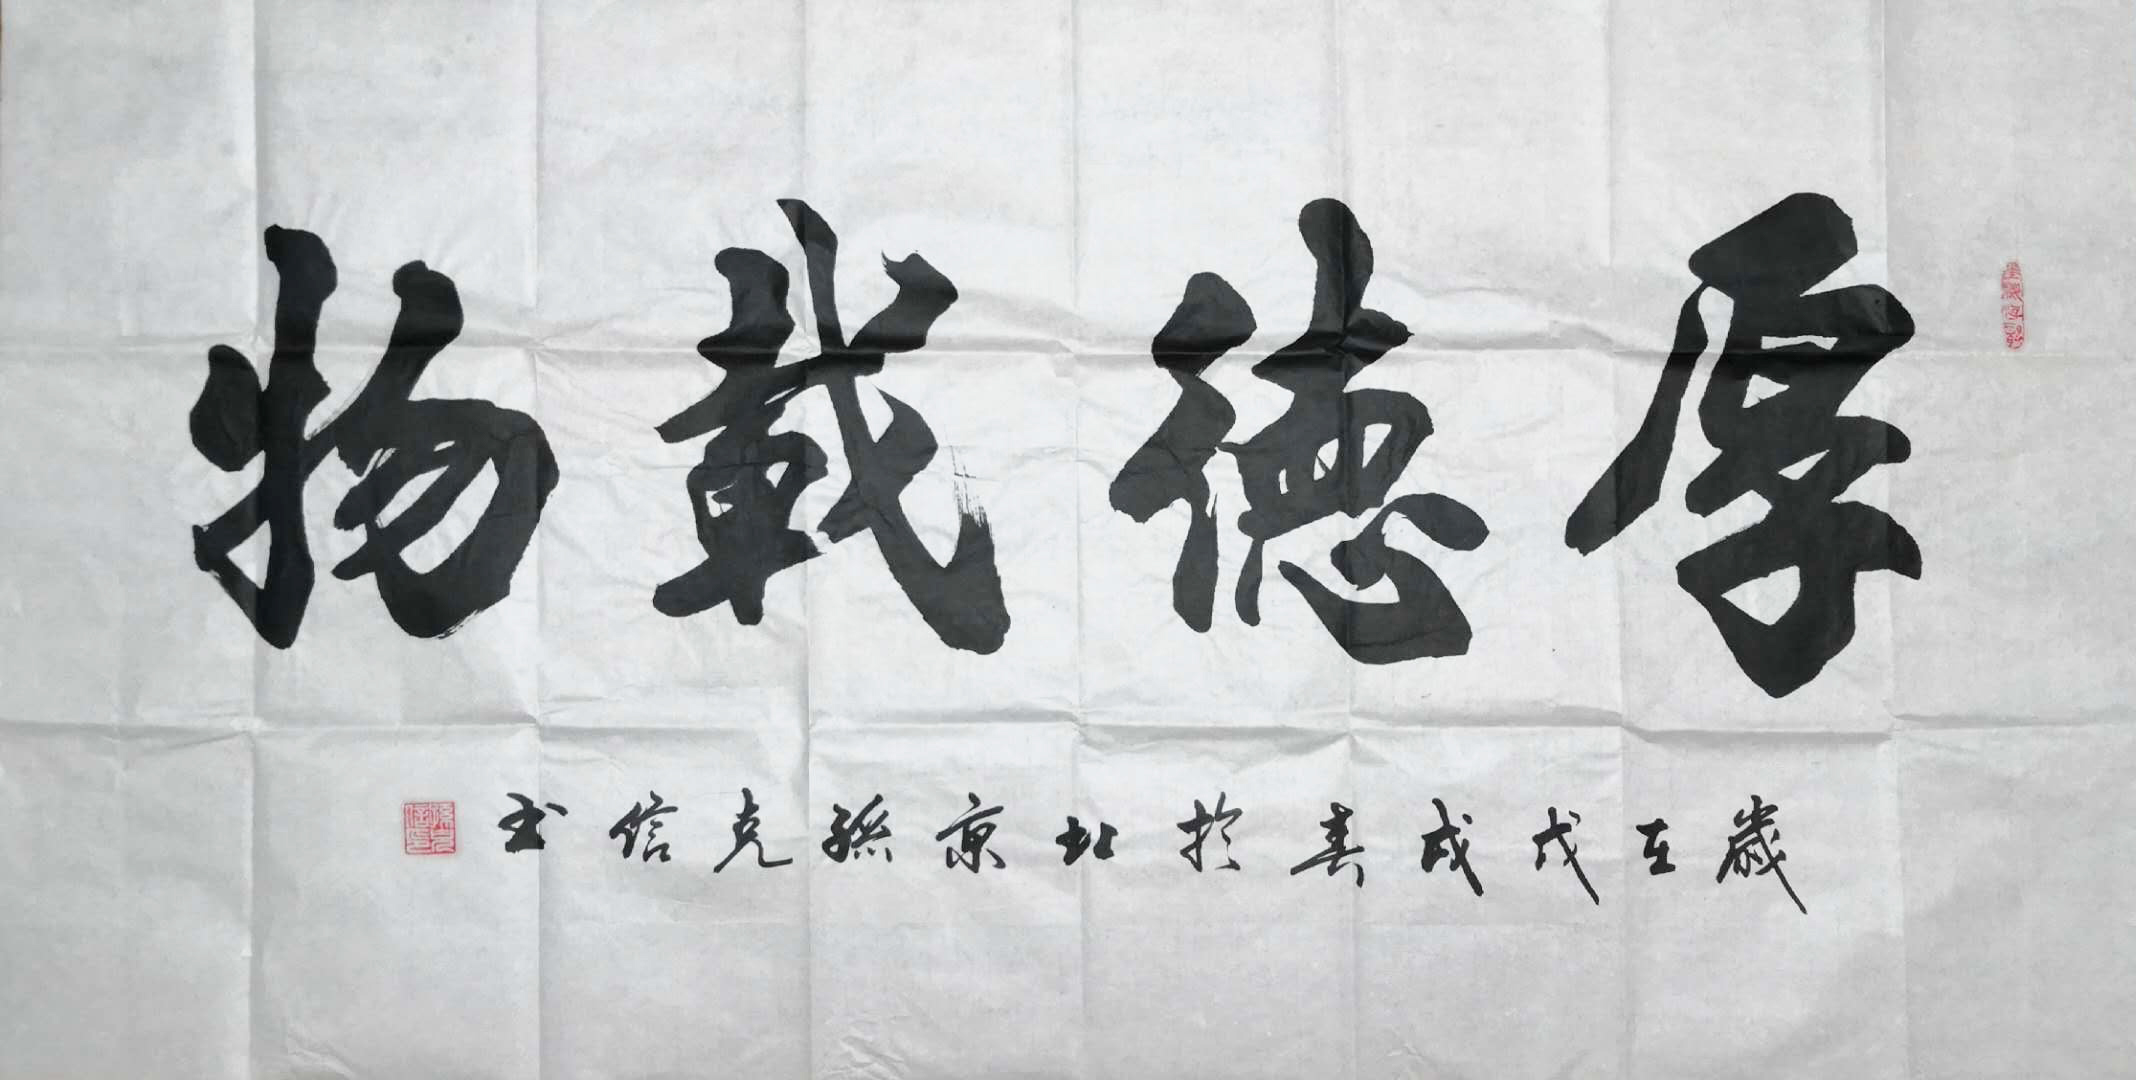 厚德載物
歲在戊戌春於北京孫克信书